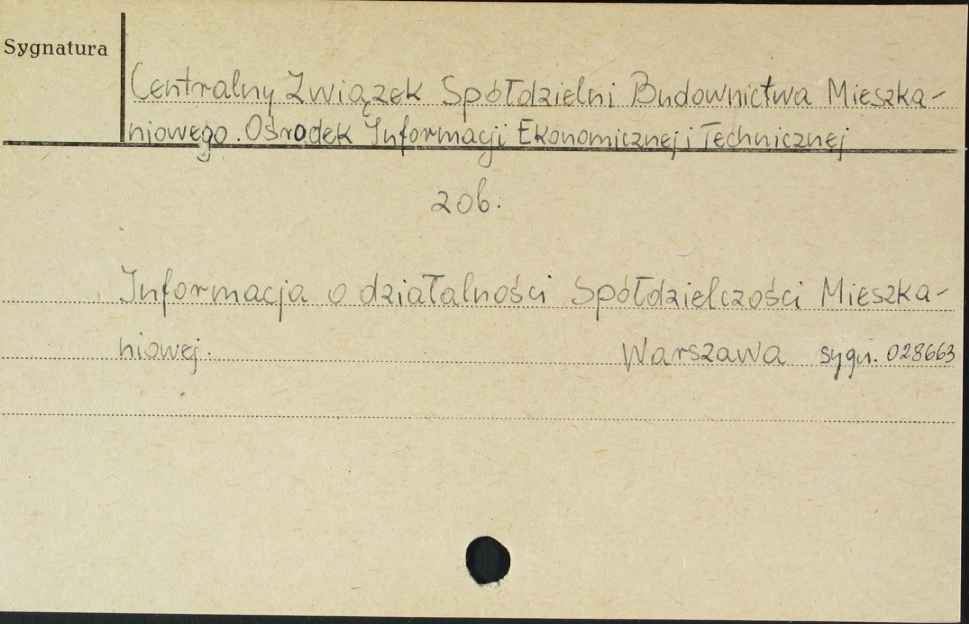 Sygnatura
Centralny Związek Spółdzielni Budownictwa Mieszka-
niowego. Ośrodek Informacji Ekonomicznej i Technicznej
zob.
Informacja o działalności Spółdzielczości Mieszka-
niowej. Warszawa sygn. 028663